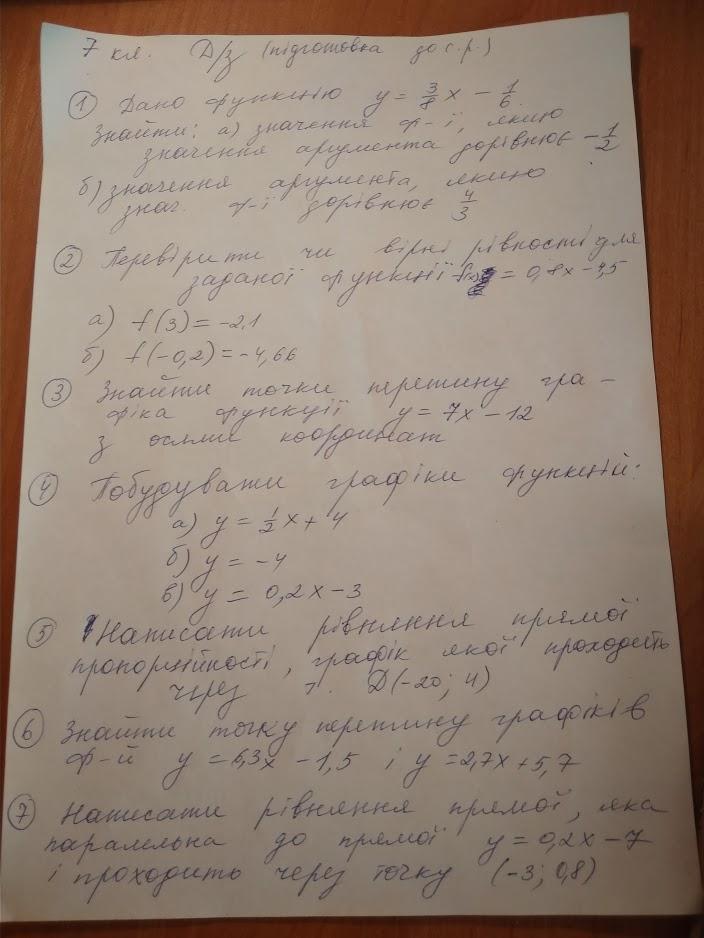 7 кл. Д/з (підготовка до с.р.)
① Дано функцію y = 3/8 x - 1/6
Знайти: а) значення ф-ї, якщо
значення аргумента дорівнює -1/2
б) значення аргумента, якщо
знач. ф-ї дорівнює 4/3
② Перевірити чи вірні рівності для
заданої функції f(x) = 0,8x - 4,5
а) f(3) = -2,1
б) f(-0,2) = -4,66
③ Знайти точки перетину гра-
фіка функції y = 7x - 12
з осями координат
④ Побудувати графіки функцій:
а) y = 1/2 x + 4
б) y = -4
в) y = 0,2x - 3
⑤ Написати рівняння прямої
пропорційності, графік якої проходить
через т. D(-20; 4)
⑥ Знайти точку перетину графіків
ф-й y = 6,3x - 1,5 і y = 2,7x + 5,7
⑦ Написати рівняння прямої, яка
паралельна до прямої y = 0,2x - 7
і проходить через точку (-3; 0,8)